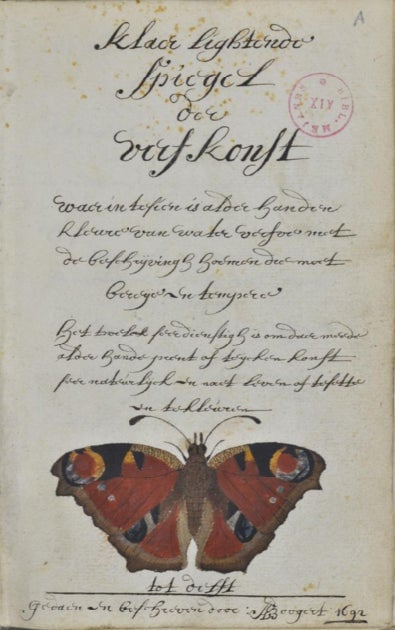 A
Klaer lightende
Spiegel
der
verfkonst
BIBL. MEJANES
XIX
waer in te sien is alder handen
kleure van water verfve met
de beschrijvingh hoemen die moet
bereyen en tempere
Het welck seer dienstigh is om daer mede
alder hande prent of teycken konst
seer natuerlyck en naer 't leven af te sette
en te kleuren
tot delft
Gedaen en beschreven door: A Boogert 1692